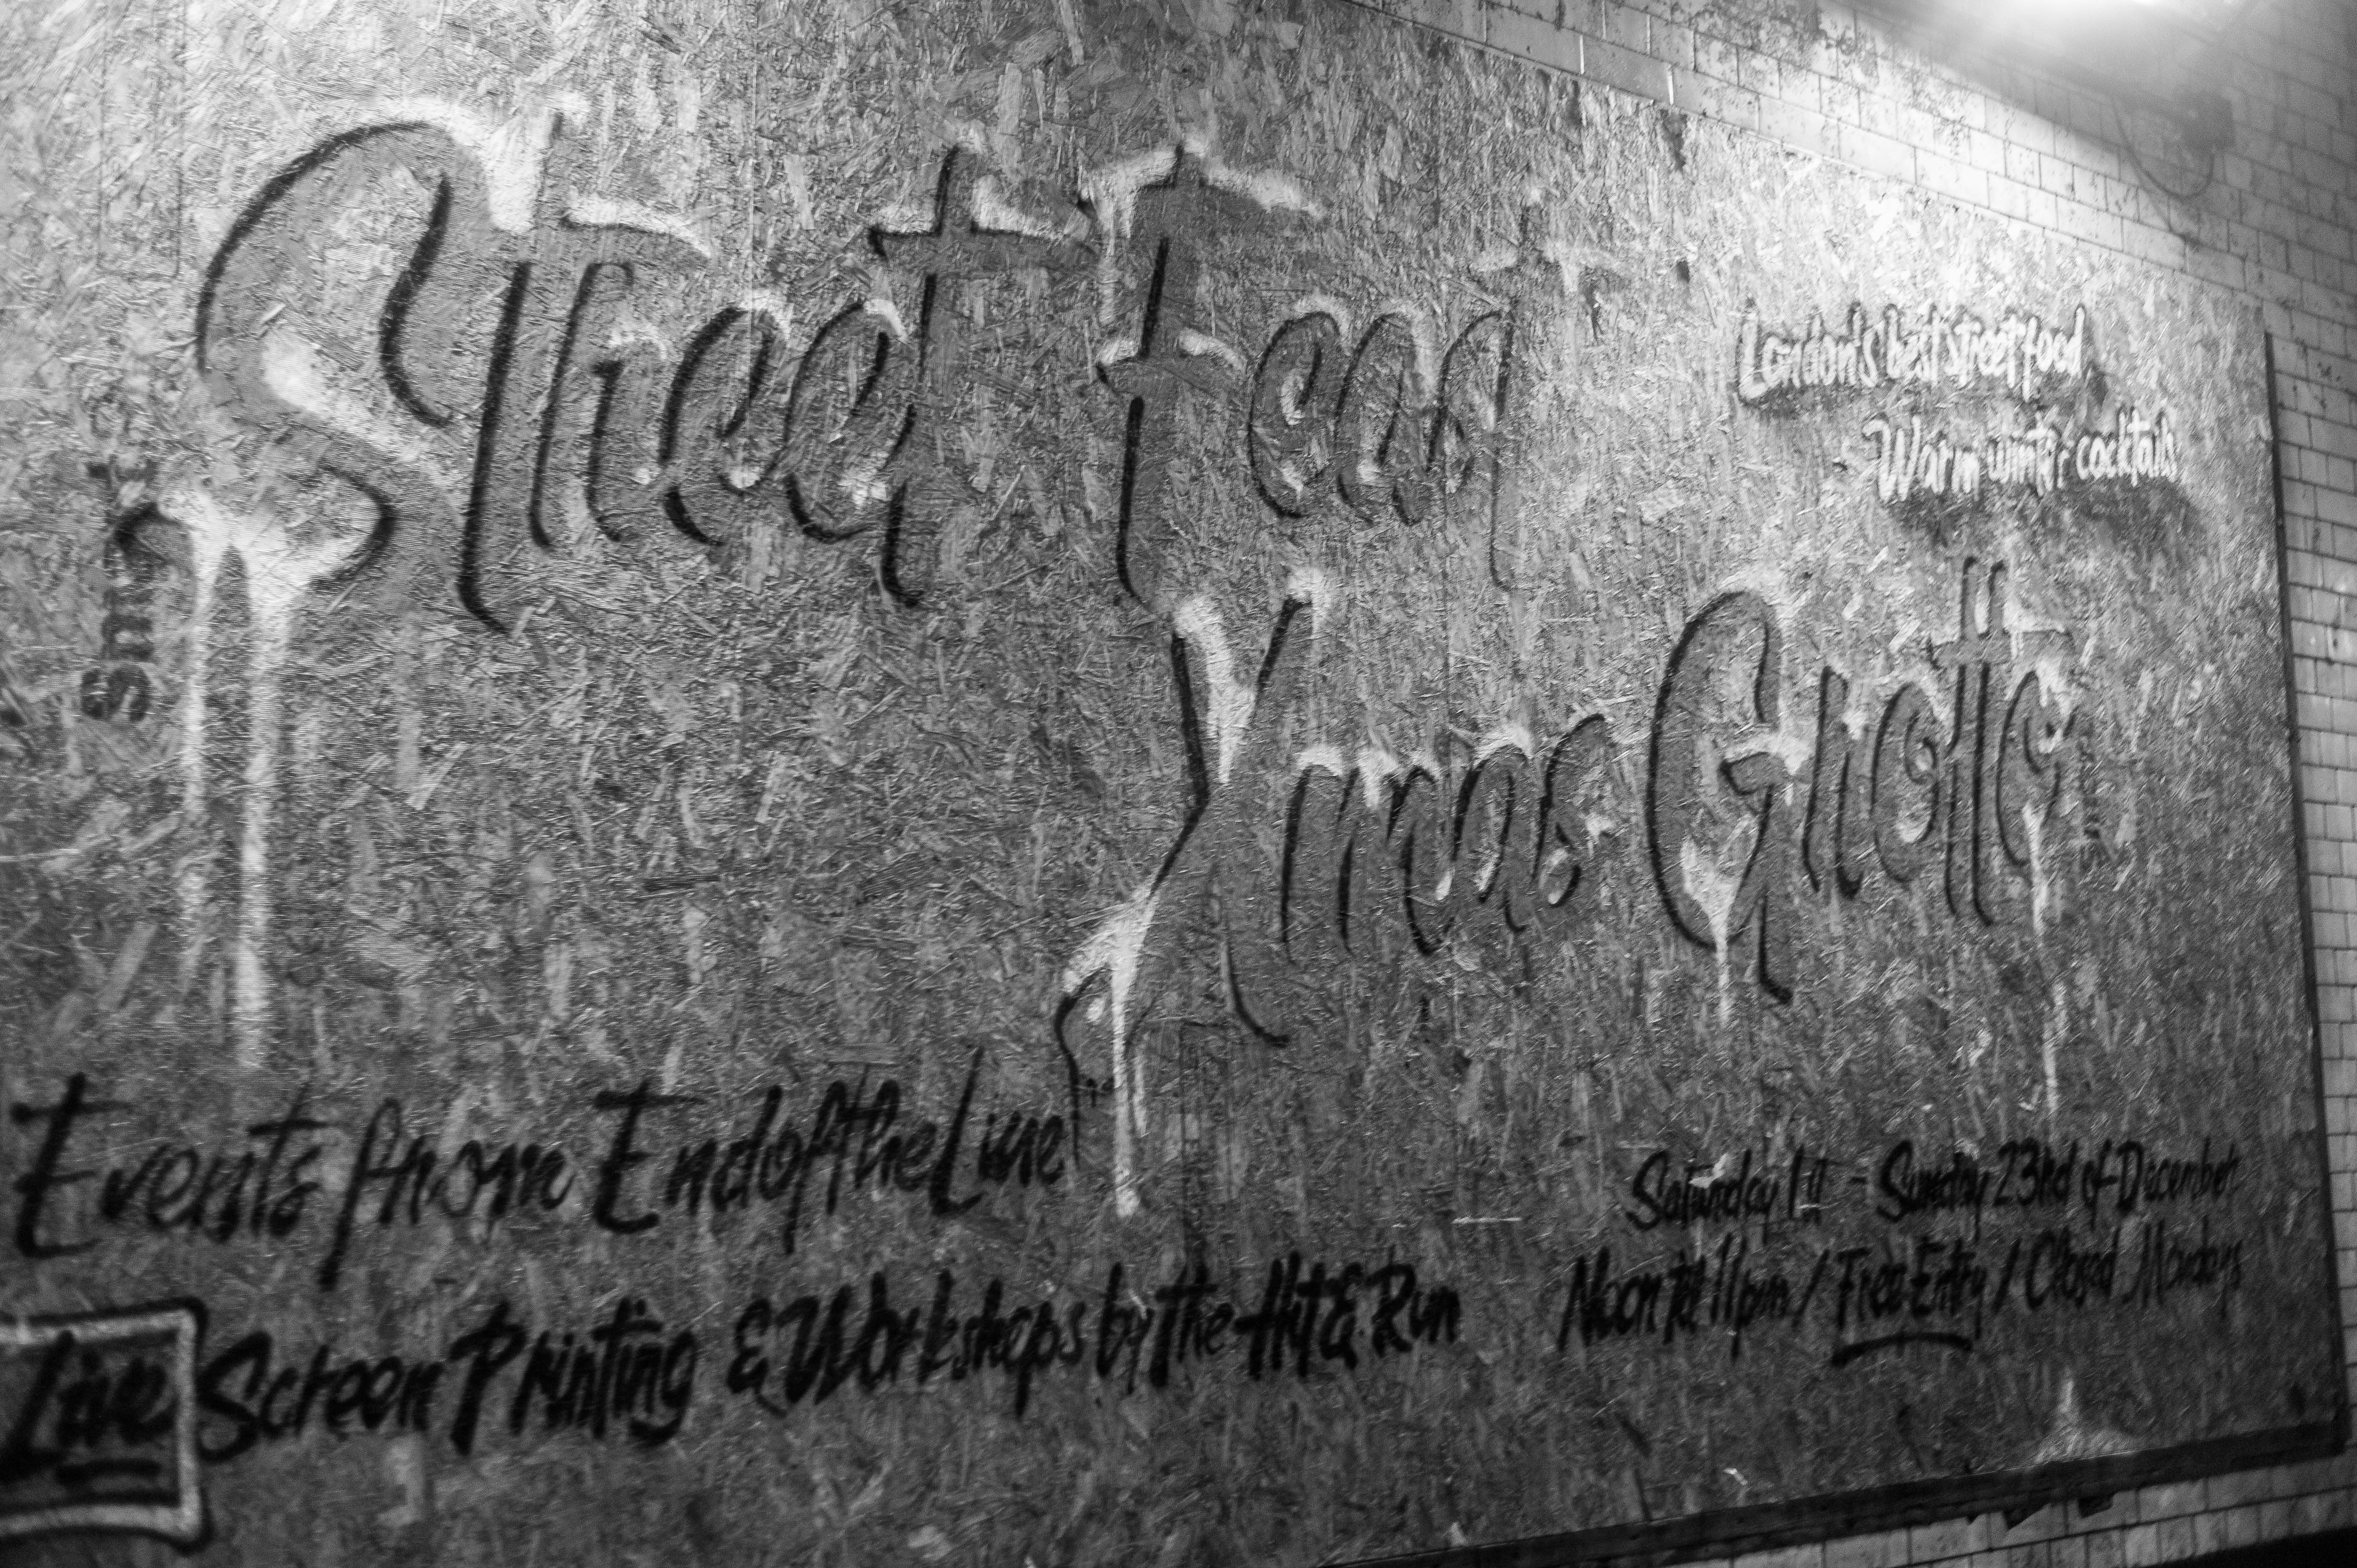 Street Feast
London's best street food
Warm winter cocktails
Xmas Grotto
Events from End of the Line
Live Screen Printing & Workshops by the Hit & Run
Saturday 1st - Sunday 23rd of December
Noon till 11pm / Free Entry / Closed Mondays